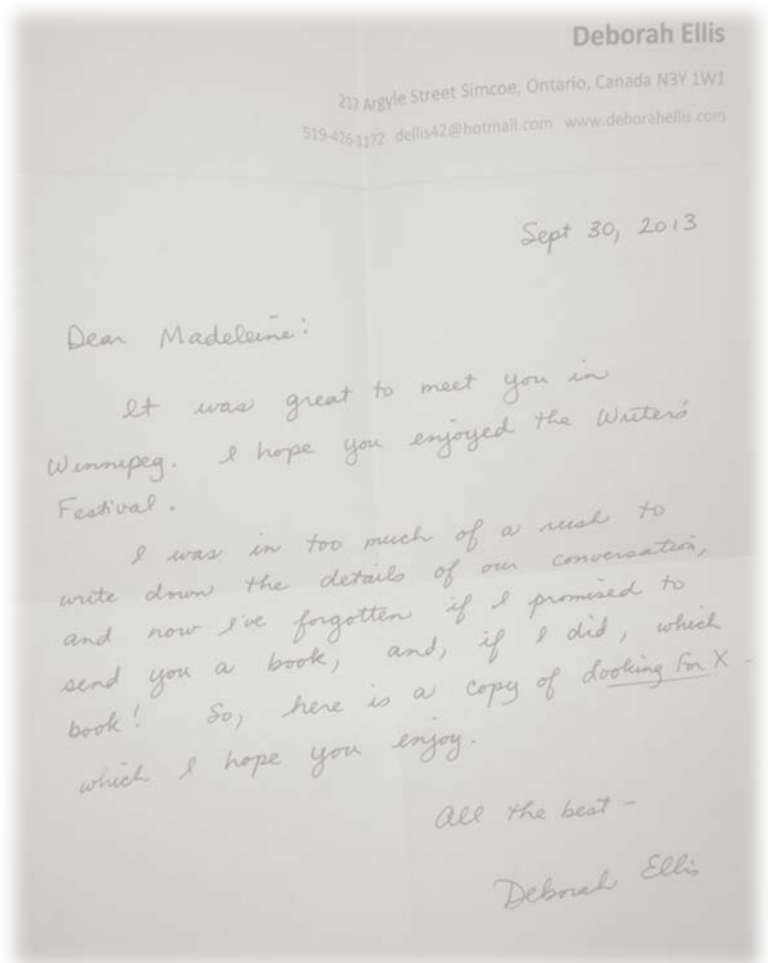 Deborah Ellis
217 Argyle Street Simcoe, Ontario, Canada N3Y 1W1
519-426-1172 dellis42@hotmail.com www.deborahellis.com
Sept 30, 2013
Dear Madeleine:
It was great to meet you in
Winnipeg. I hope you enjoyed the Writers'
Festival.
I was in too much of a rush to
write down the details of our conversation,
and now I've forgotten if I promised to
send you a book, and, if I did, which
book! So, here is a copy of Looking for X -
which I hope you enjoy.
All the best -
Deborah Ellis